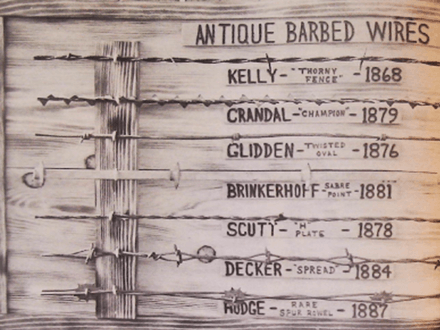 ANTIQUE BARBED WIRES
KELLY-"THORNY FENCE"-1868
CRANDAL-"CHAMPION"-1879
GLIDDEN-TWISTED OVAL-1876
BRINKERHOFF-SABRE POINT-1881
SCUTT-"H" PLATE-1878
DECKER-"SPREAD"-1884
HODGE-RARE SPUR ROWEL-1887